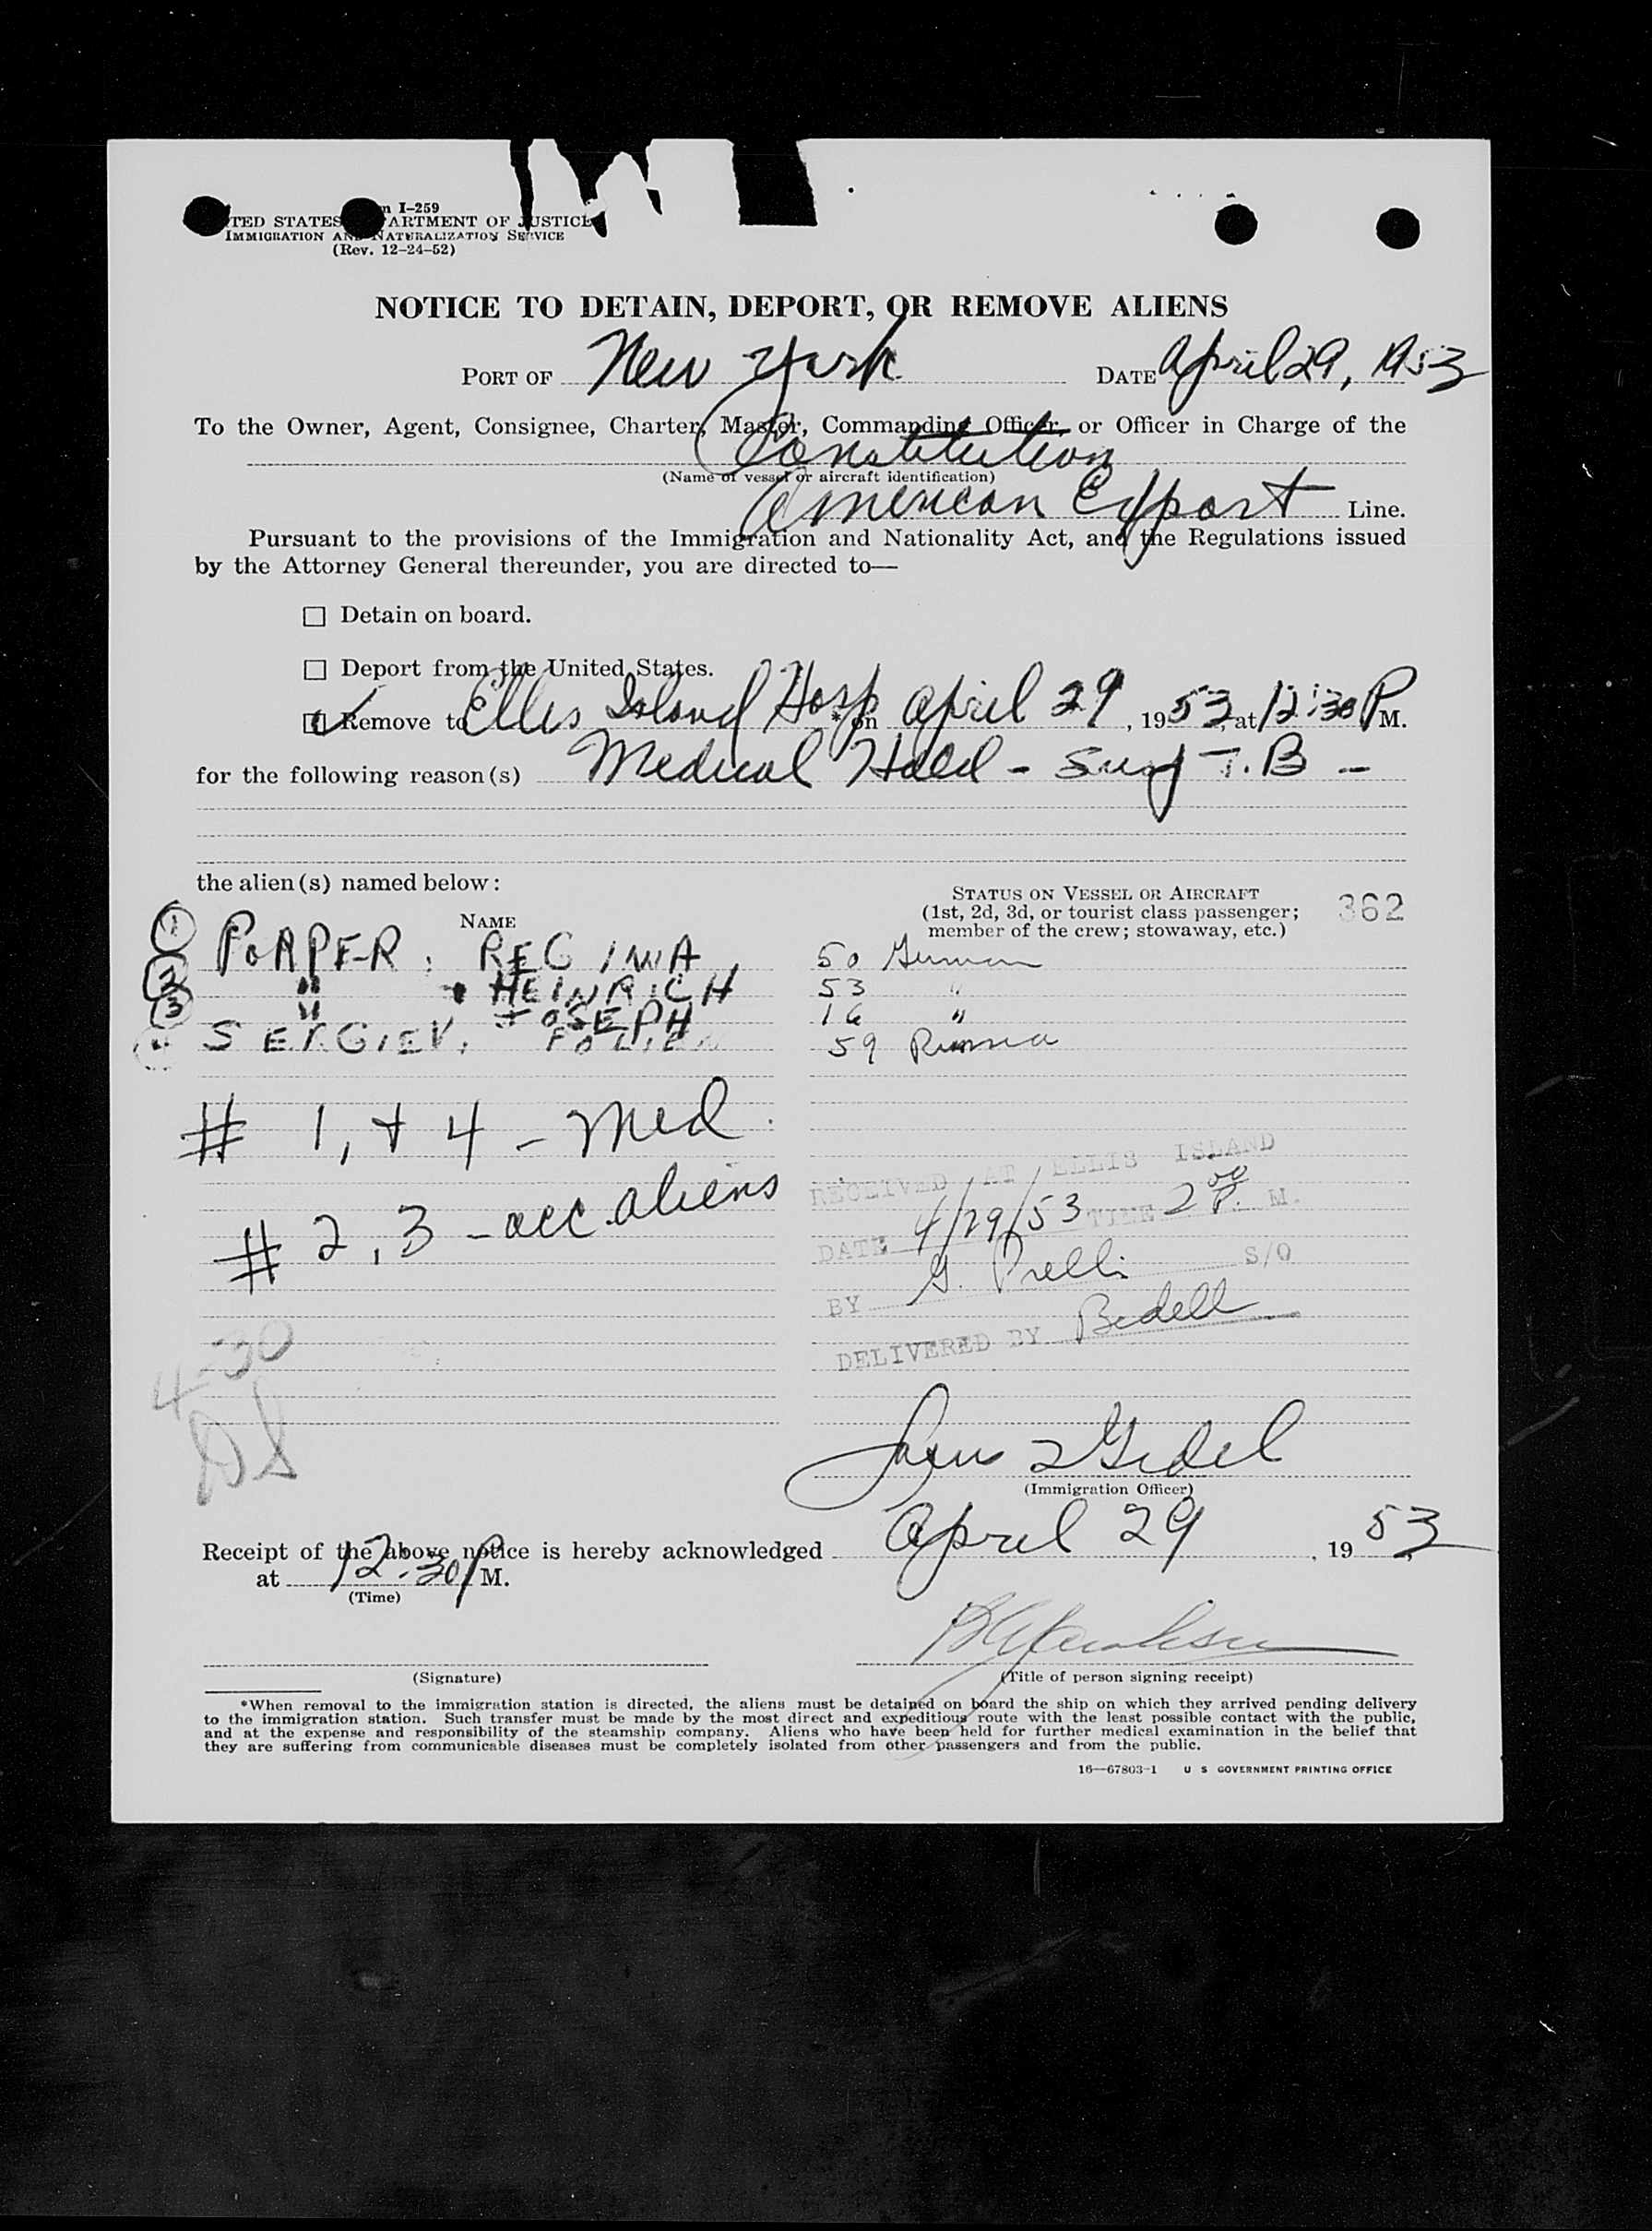 I-259
TED STATES ARTMENT OF JUSTICE
IMMIGRATION AND NATURALIZATION SERVICE
(Rev. 12-24-52)
NOTICE TO DETAIN, DEPORT, OR REMOVE ALIENS
PORT OF New York DATE April 29, 1953
To the Owner, Agent, Consignee, Charter, Master, Commanding Officer, or Officer in Charge of the
Constitution
(Name of vessel or aircraft identification)
American Export Line.
Pursuant to the provisions of the Immigration and Nationality Act, and the Regulations issued
by the Attorney General thereunder, you are directed to—
☐ Detain on board.
☐ Deport from the United States.
☑ Remove to Ellis Island Hosp * on April 29, 1953, at 12:30 P M.
for the following reason(s) Medical Held - Susp T.B -
the alien(s) named below:
NAME
STATUS ON VESSEL OR AIRCRAFT
(1st, 2d, 3d, or tourist class passenger;
member of the crew; stowaway, etc.)
362
1 REGINA 50 German
2 " HEINRICH 53 "
3 " JOSEPH 16 "
4 SERGIEV, 59 Russia
# 1, + 4 - Med.
# 2, 3 - acc. aliens
RECEIVED AT ELLIS ISLAND
DATE 4/29/53 TIME 2 00 P. M.
BY G. Prelli S/O
DELIVERED BY Bedell
4-30
DS
(Immigration Officer)
Receipt of the above notice is hereby acknowledged April 29, 1953
at 12:30 P M.
(Time)
(Signature)
(Title of person signing receipt)
*When removal to the immigration station is directed, the aliens must be detained on board the ship on which they arrived pending delivery
to the immigration station. Such transfer must be made by the most direct and expeditious route with the least possible contact with the public,
and at the expense and responsibility of the steamship company. Aliens who have been held for further medical examination in the belief that
they are suffering from communicable diseases must be completely isolated from other passengers and from the public.
16—67803-1 U S GOVERNMENT PRINTING OFFICE